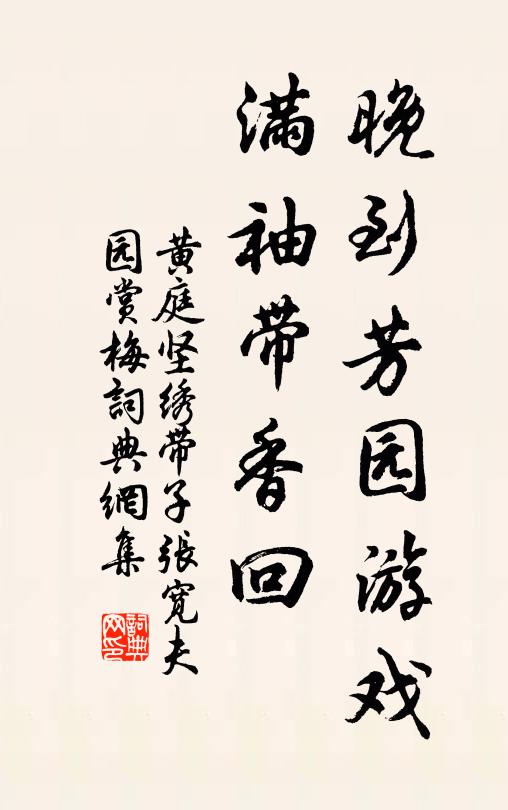 晚到芳园游戏
满袖带香回
黄庭坚绣带子張宽夫
园赏梅詞典網集
詞典网印